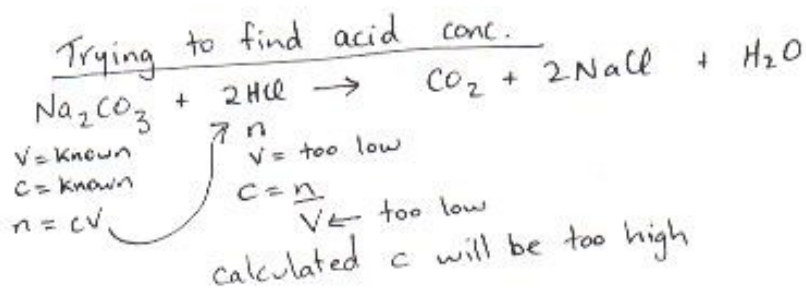 Trying to find acid conc.
Na₂CO₃ + 2HCl → CO₂ + 2NaCl + H₂O
V = known
C = known
n = cV
n
V = too low
C = n/V ← too low
calculated c will be too high